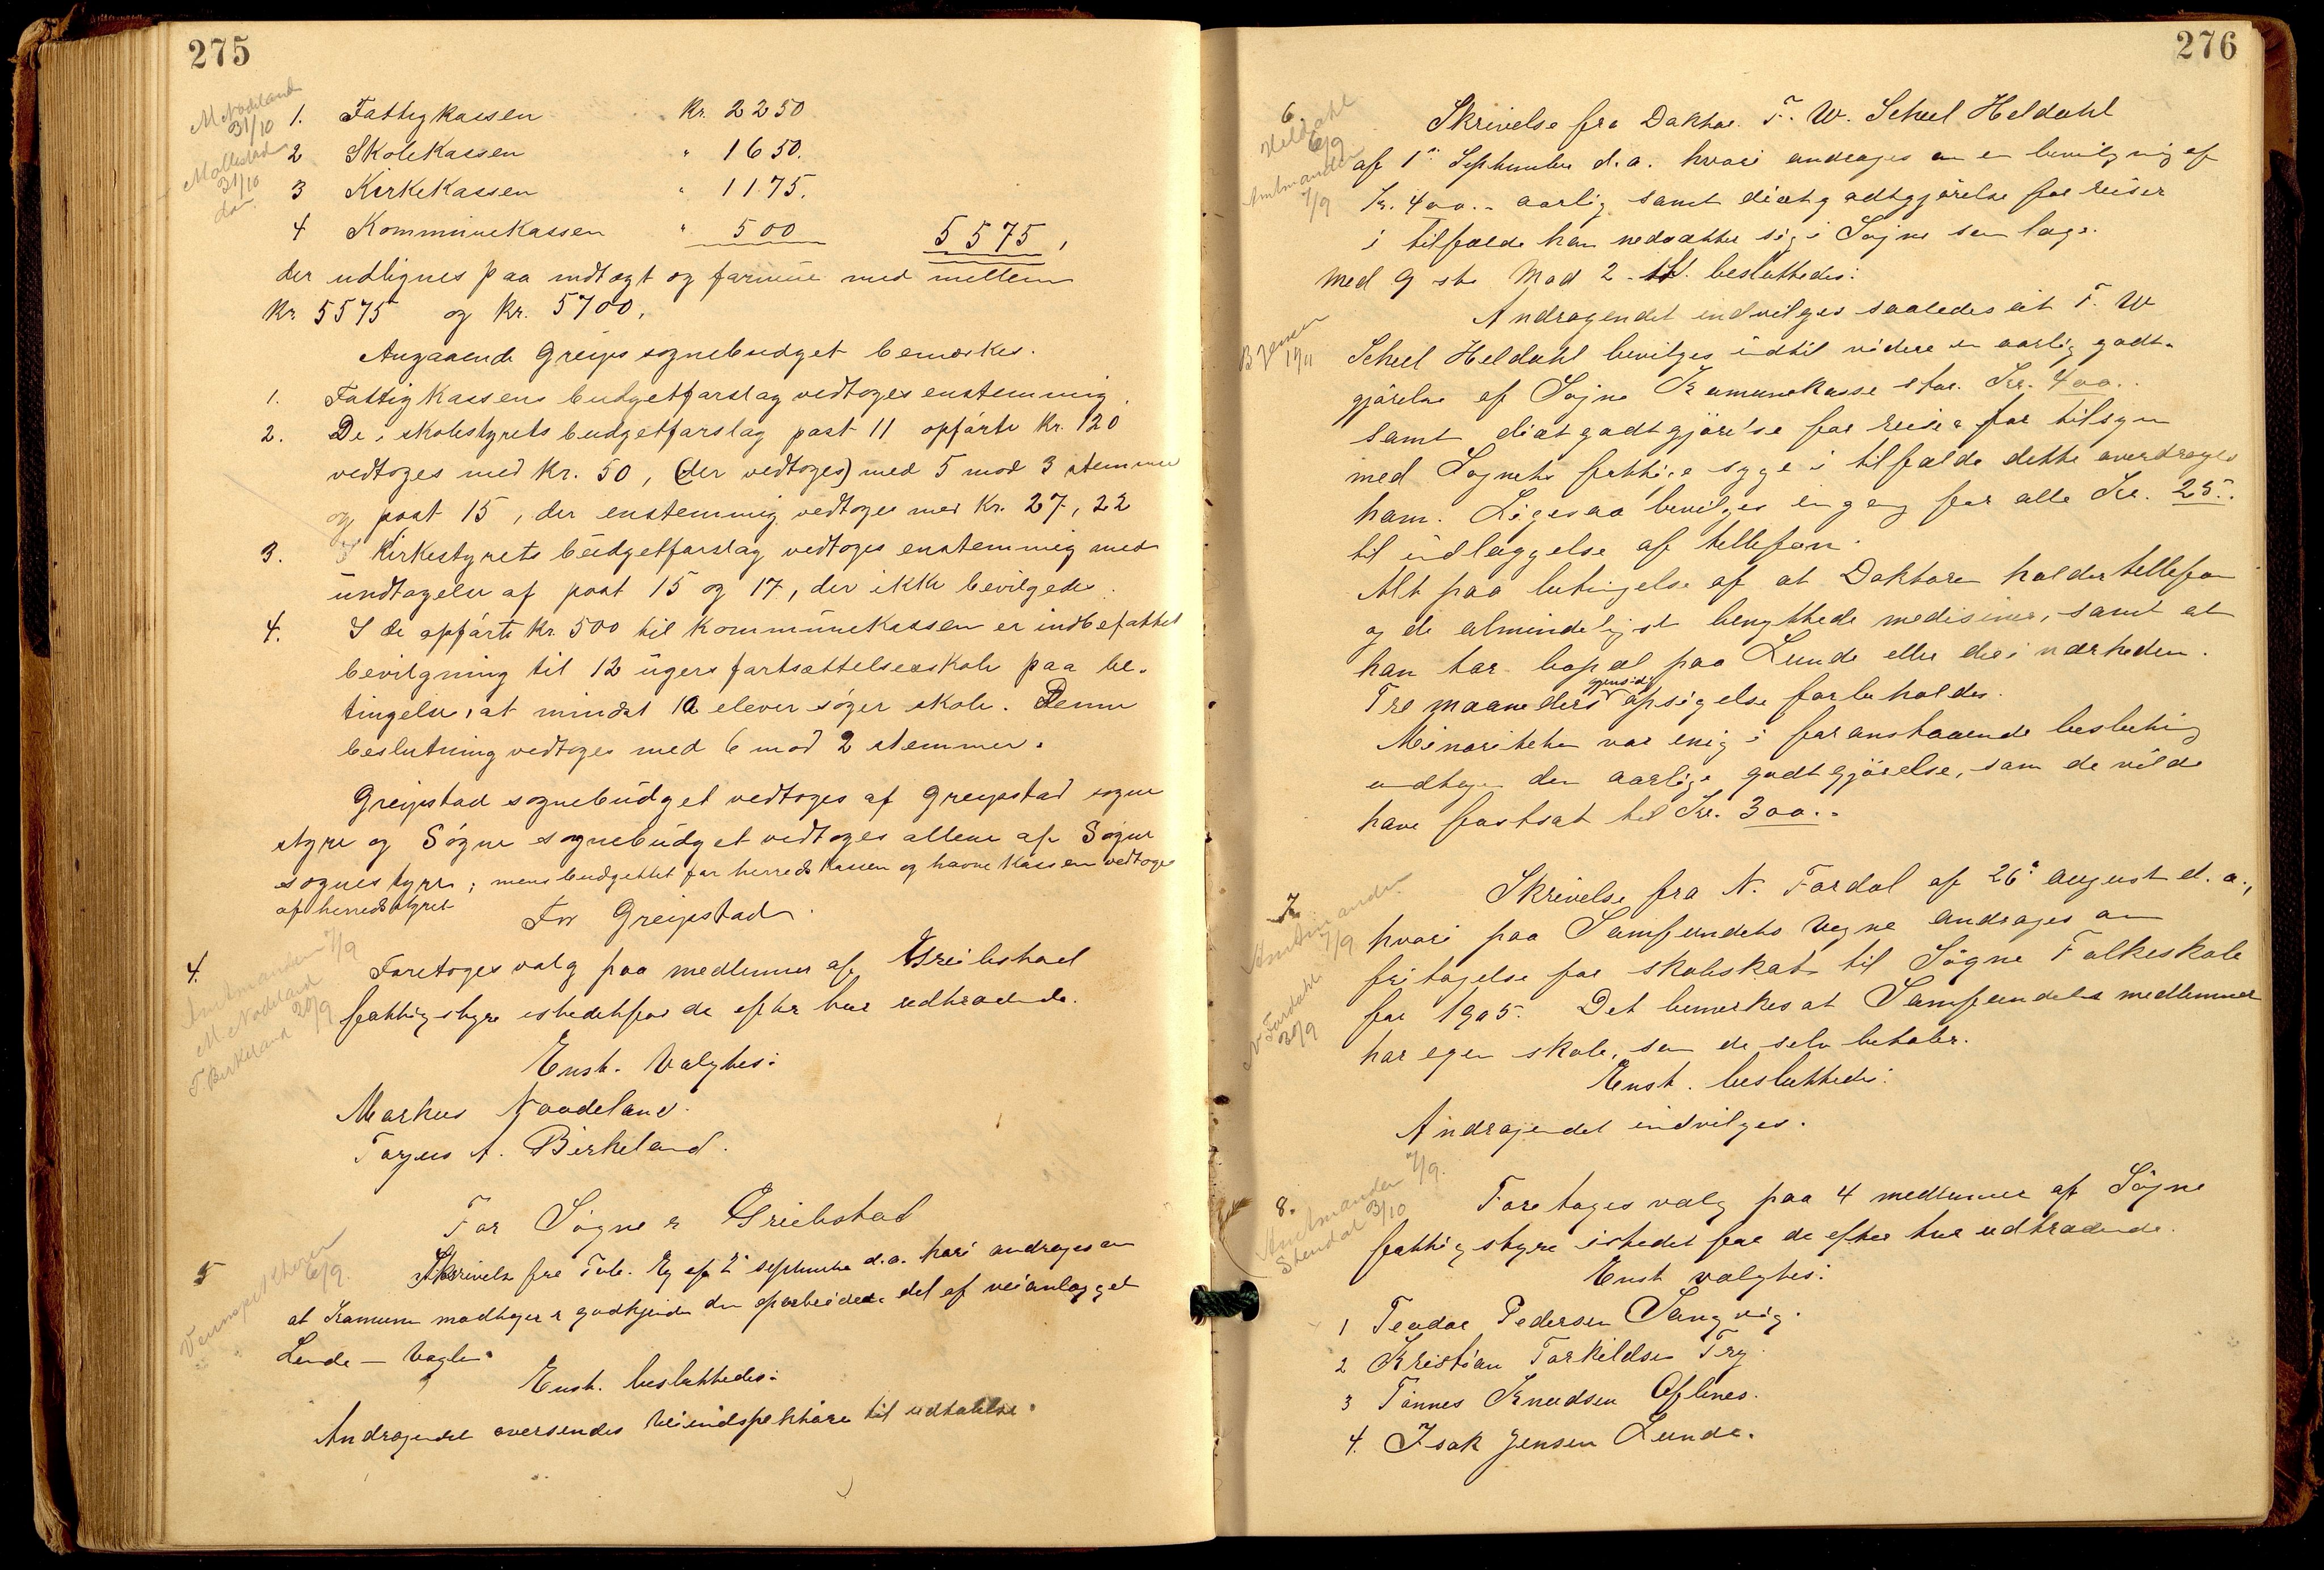 275
M Nodeland
31/10
Mollestad
31/10
dom
1. Fattigkassen Kr. 2250
2 Skolekassen " 1650.
3 Kirkekassen " 1175.
4 Kommunekassen " 500 5575,
der udlignes paa indtægt og formue med mellem
Kr 5575 og Kr. 5700,
Angaaende Greips sognebudget bemærkes.
1. Fattigkassens budgetforslag vedtoges enstemmig.
2. De i skolestyrets budgetforslag post 11 opførte Kr. 120
vedtoges med Kr. 50, (der vedtoges) med 5 mod 3 stemmer
og post 15, der enstemmig vedtoges med Kr. 27,22
3. Kirkestyrets budgetforslag vedtoges enstemmig med
undtagelse af post 15 og 17, der ikke bevilgedes.
4. I de opførte Kr. 500 til Kommunekassen er indbefattet
bevilgning til 12 ugers fortsættelsesskole paa be-
tingelse, at mindst 10 elever søger skole. Denne
beslutning vedtoges med 6 mod 2 stemmer.
Greipstad sognebudget vedtoges af Greipstad sogne
styre og Søgne sognebudget vedtoges allene af Søgne
sognestyre; mens budgettet for herredskassen og havnekassen vedtoges
af herredsstyret
For Greipstad.
Amtmanden 7/9
M. Nodeland
T. Birkeland 20/9
4. Foretoges valg paa medlemmer af Greibstad
fattigstyre istedetfor de efter tur udtrædende.
Enst. Valgtes:
Markus Noodeland.
Torjus A. Birkeland.
For Søgne & Greibstad
Veiinspektøren
6/9.
5 Skrivelse fra Tob. Eg af 2' september d.a. hvori andrages om
at Komunen modtager & godkjender den oparbeidede del af veianlægget
Lunde — Vagle.
Enst. besluttedes:
Andragendet oversendes Veiindspektøren til udtalelse.
276
6.
Heldahl
6/9
Amtmanden
7/9
Skrivelse fra Doktor T. W. Scheel Heldahl
af 1ste September d.a. hvori andrages om en bevilgning af
Kr. 400.- aarlig samt diætgodtgjørelse for reiser
i tilfælde han nedsætter sig i Søgne som læge.
Med 9 st. Mod 2 st. besluttedes:
B Jensen
19/11
Andragendet indvilges saaledes at T. W
Scheel Heldahl bevilges indtil videre en aarlig godt-
gjørelse af Søgne Komunekasse stor Kr. 400..
samt diætgodtgjørelse for reiser for tilsyn
med Sognets fattige syge i tilfælde dette overdrages
ham. Ligesaa bevilges en gang for alle Kr. 25..
til indlæggelse af tellefon.
Alt paa betingelse af at Doktoren holder tellefon
og de almindeligst benyttede medisiner, samt at
han tar bopæl paa Lunde eller der i nærheden.
Tre maaneders gjensidig opsigelse forbeholdes.
Minoriteten var enig i foranstaaende beslutning
undtagen den aarlige godtgjørelse, som de vilde
have fastsat til Kr. 300..
7.
Amtmanden
7/9
N Fardahl
30/9
Skrivelse fra N. Fardal af 26de august d. a.,
hvori paa Samfundets Vegne andrages om
fritagelse for skoleskat til Søgne Folkeskole
for 1905. Det bemerkes at Samfundets medlemmer
har egen skole, som de selv betaler.
Enst. besluttedes:
Andragendet indvilges.
8.
Amtmanden 7/9.
Stendal 3/10
Foretoges valg paa 4 medlemmer af Søgne
fattigstyre istedet for de efter tur udtrædende.
Enst valgtes:
1 Teodor Pedersen Langvig.
2 Kristian Torkildsen Try
3 Tønnes Knudsen Eftenes.
4. Isak Jensen Lunde.